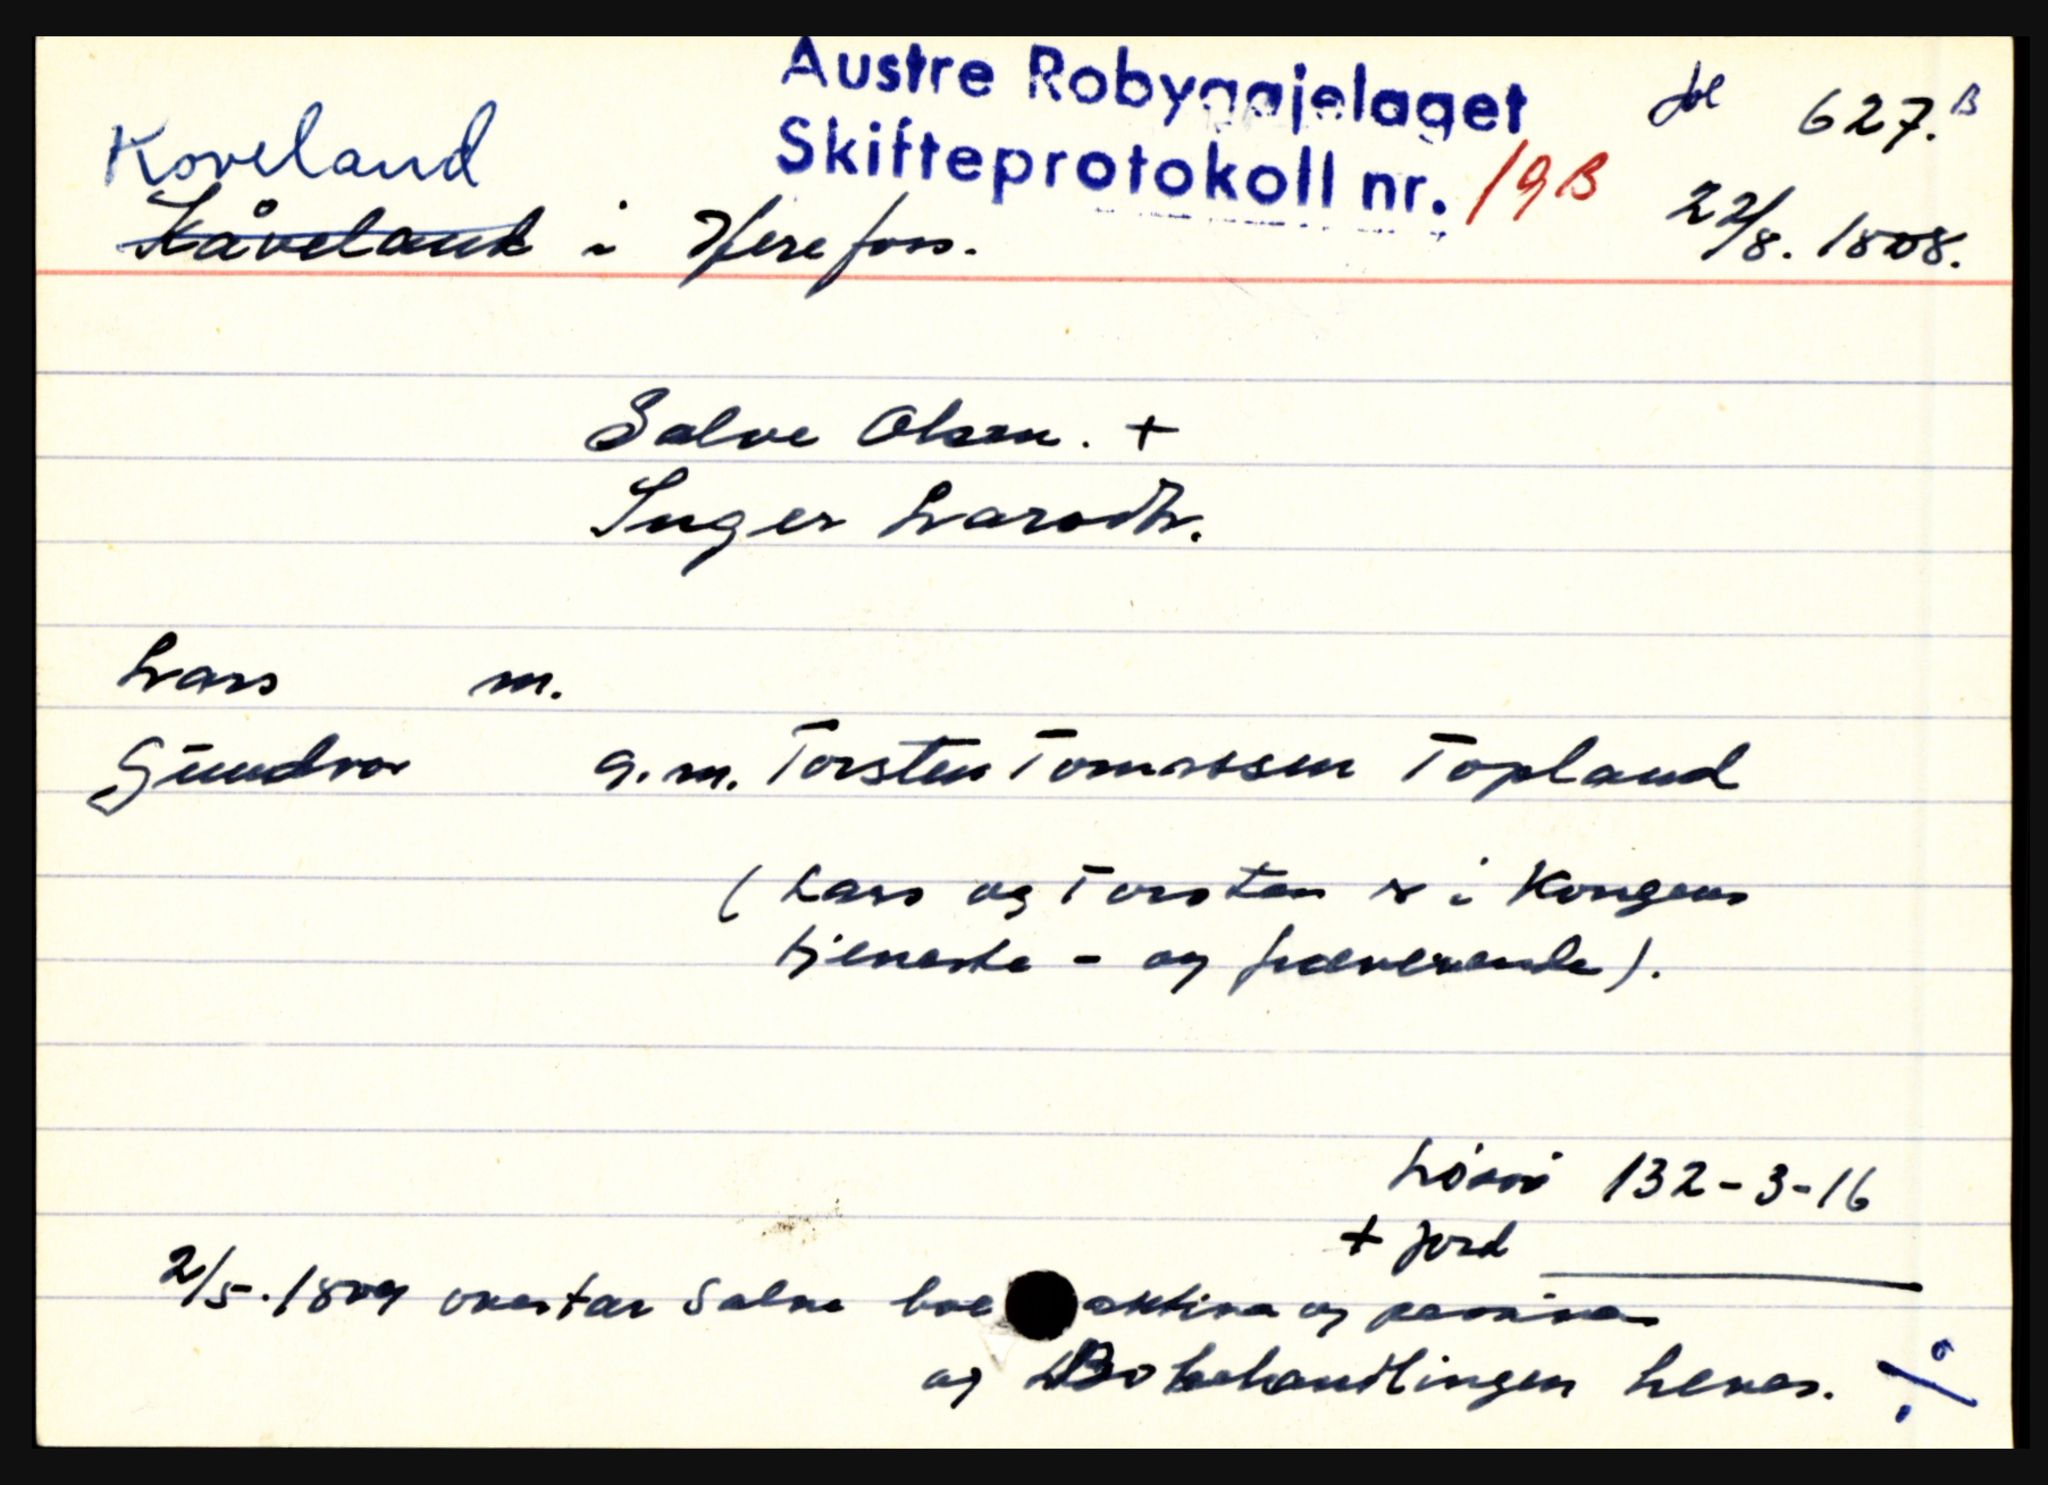 Austre Robyggjelaget
fol 627.B
Koveland
Skifteprotokoll nr. 19B
Kåveland i Herefoss.
22/8. 1808.
Salve Olsen. +
Inger Larsdtr.
Lars m.
Gundvor g.m. Torsten Tomassen Topland
( Lars og Torsten er i Kongens
tjeneste - og fraværende).
Løsøre 132-3-16
+ jord
2/5. 1809 overtar Salve boets aktiva og passiva
og Bobehandlingen heves.